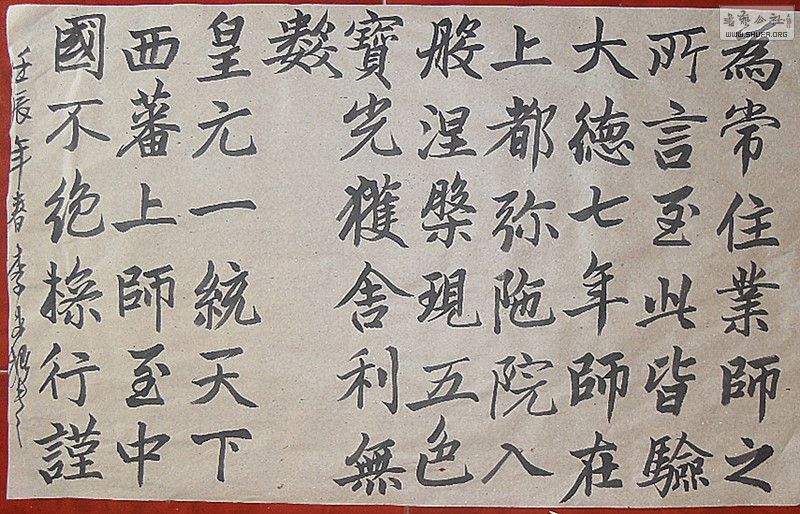 為常住業師之
所言至此皆驗
大德七年師在
上都弥陁院入
般涅槃現五色
寶光獲舍利無
數
皇元一統天下
西蕃上師至中
國不絶操行謹
壬辰年春李
書藝公社
WWW.SHUFA.ORG